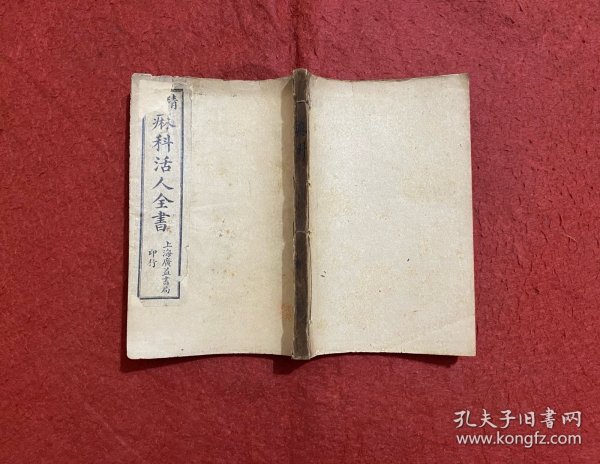 痳科活人全書
上海廣益書局
印行
孔夫子旧书网
www.kongfz.com